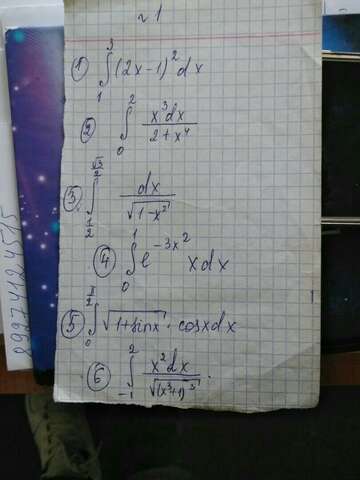 №1
① ∫₁³ (2x-1)² dx
② ∫₀² x³dx / (2+x⁴)
③ ∫_{1/2}^{√3/2} dx / √(1-x²)
④ ∫₀¹ e^{-3x²} xdx
⑤ ∫₀^{π/2} √(1+sinx) · cosxdx
⑥ ∫₋₁² x²dx / √((x³+1)³).